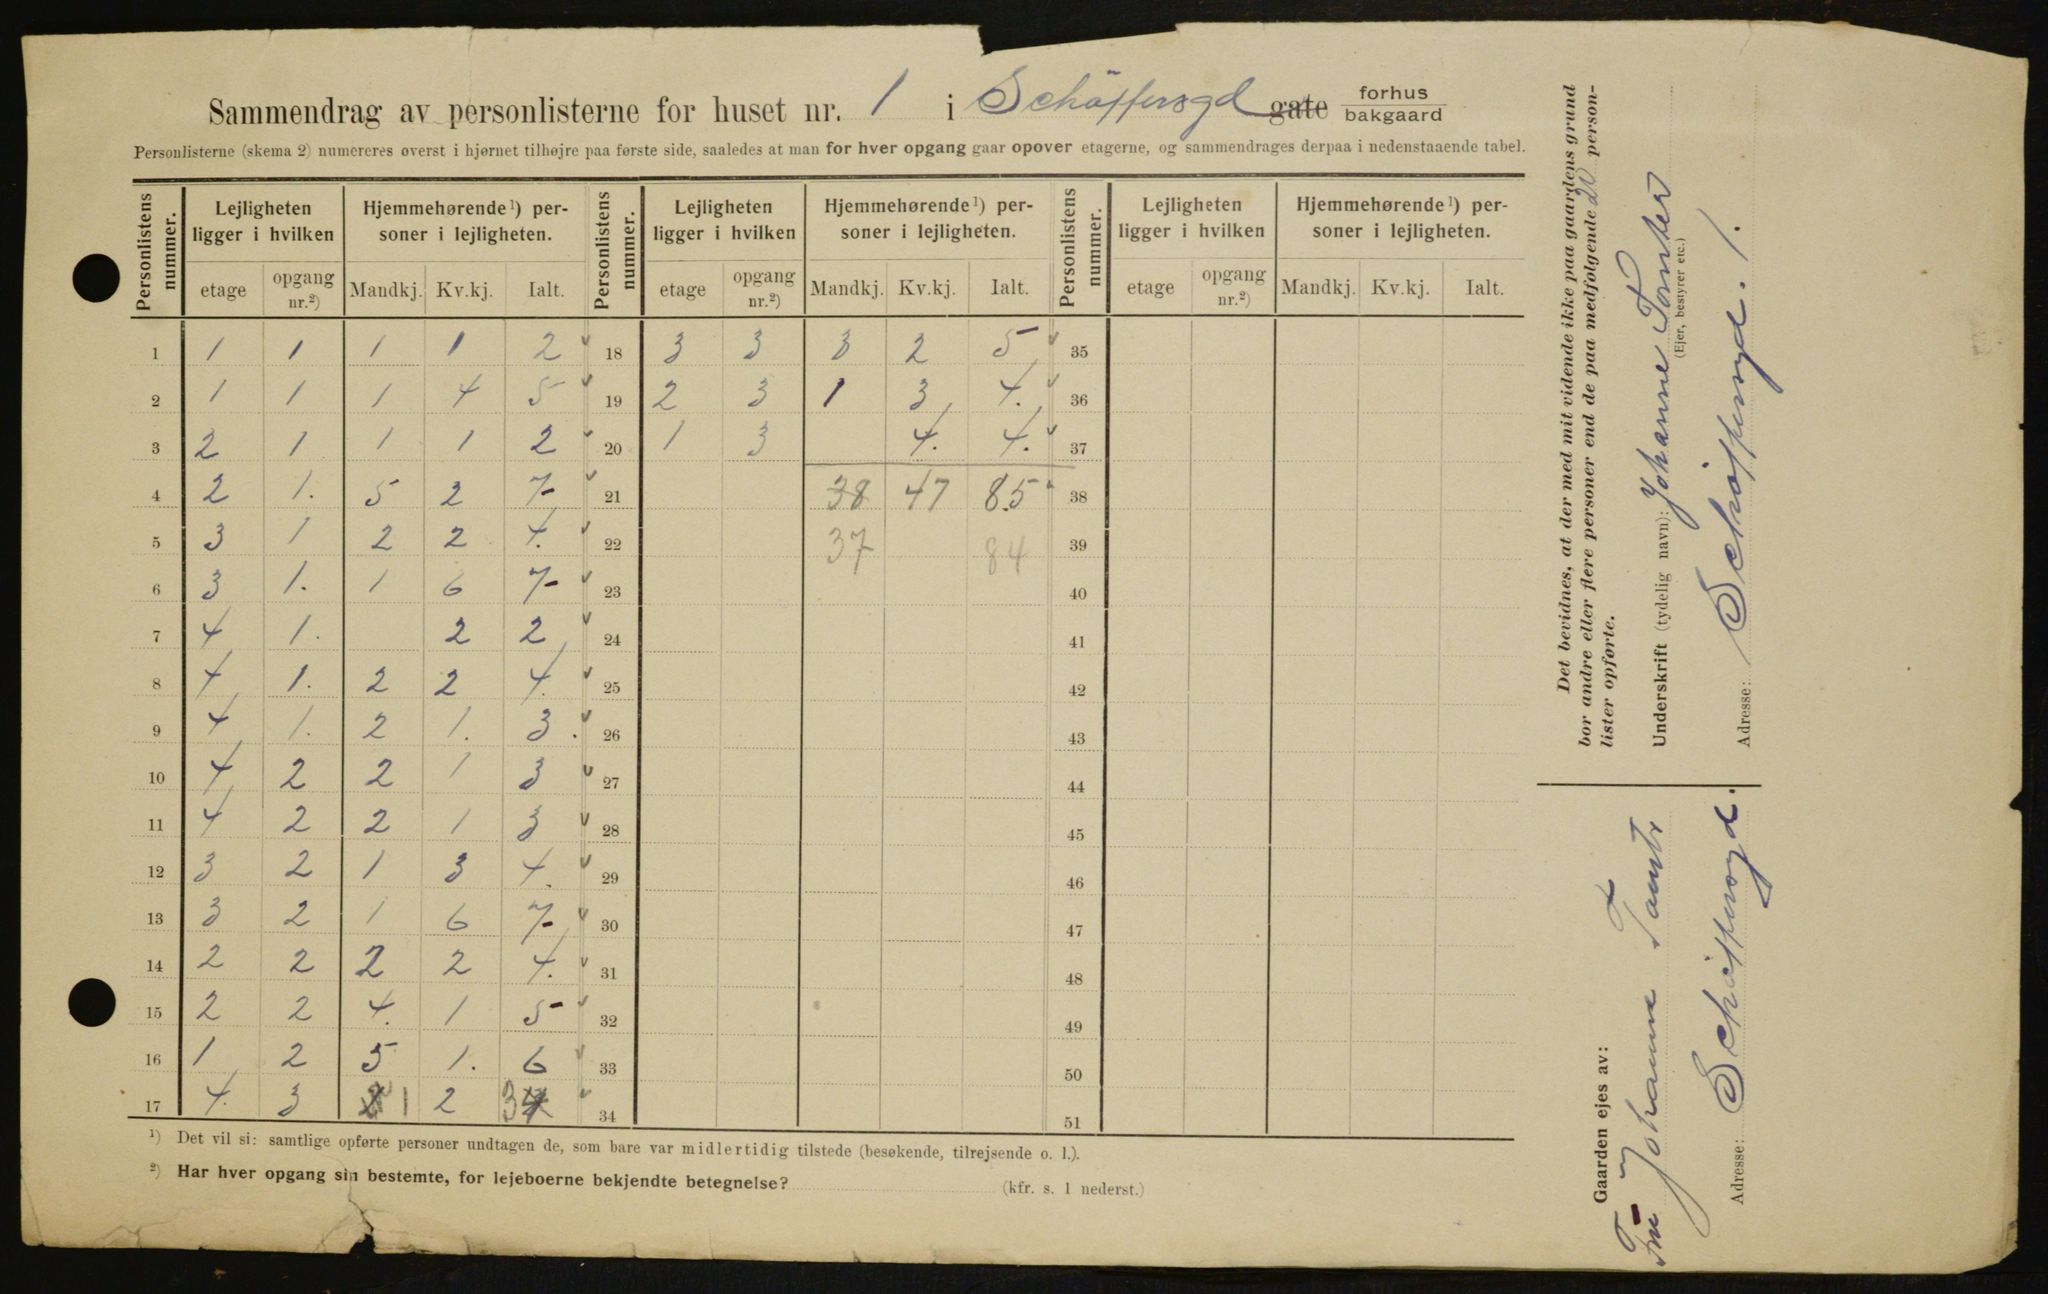 Sammendrag av personlisterne for huset nr. 1 i Schäffersgd gate forhus bakgaard
Personlisterne (skema 2) numereres øverst i hjørnet tilhøjre paa første side, saaledes at man for hver opgang gaar opover etagerne, og sammendrages derpaa i nedenstaaende tabel.
Personlistens nummer. Lejligheten ligger i hvilken Hjemmehørende¹) personer i lejligheten. Personlistens nummer. Lejligheten ligger i hvilken Hjemmehørende¹) personer i lejligheten. Personlistens nummer. Lejligheten ligger i hvilken Hjemmehørende¹) personer i lejligheten.
etage opgang nr.²) Mandkj. Kv.kj. Ialt. etage opgang nr.²) Mandkj. Kv.kj. Ialt. etage opgang nr.²) Mandkj. Kv.kj. Ialt.
1 1 1 1 1 2 18 3 3 3 2 5 35
2 1 1 1 4 5 19 2 3 1 3 4. 36
3 2 1 1 1 2 20 1 3 4. 4. 37
4 2 1. 5 2 7 21 38 47 85 38
5 3 1 2 2 4. 22 37 84 39
6 3 1. 1 6 7 23 40
7 4 1. 2 2 24 41
8 4 1. 2 2 4. 25 42
9 4 1. 2 1. 3. 26 43
10 4 2 2 1 3 27 44
11 4 2 2 1 3 28 45
12 3 2 1 3 4. 29 46
13 3 2 1 6 7 30 47
14 2 2 2 2 4. 31 48
15 2 2 4. 1 5 32 49
16 1 2 5 1. 6 33 50
17 4. 3 1 2 3 34 51
¹) Det vil si: samtlige opførte personer undtagen de, som bare var midlertidig tilstede (besøkende, tilrejsende o. l.).
²) Har hver opgang sin bestemte, for lejeboerne bekjendte betegnelse? (kfr. s. 1 nederst.)
Det bevidnes, at der med mit vidende ikke paa gaardens grund
bor andre eller flere personer end de paa medfølgende 20 person-
lister opførte.
Underskrift (tydelig navn): Johanne Tomter
(Ejer, bestyrer etc.)
Adresse: Schäffersgd. 1.
Gaarden ejes av:
Fru Johanne Tomter
Adresse: Schäffersgd.